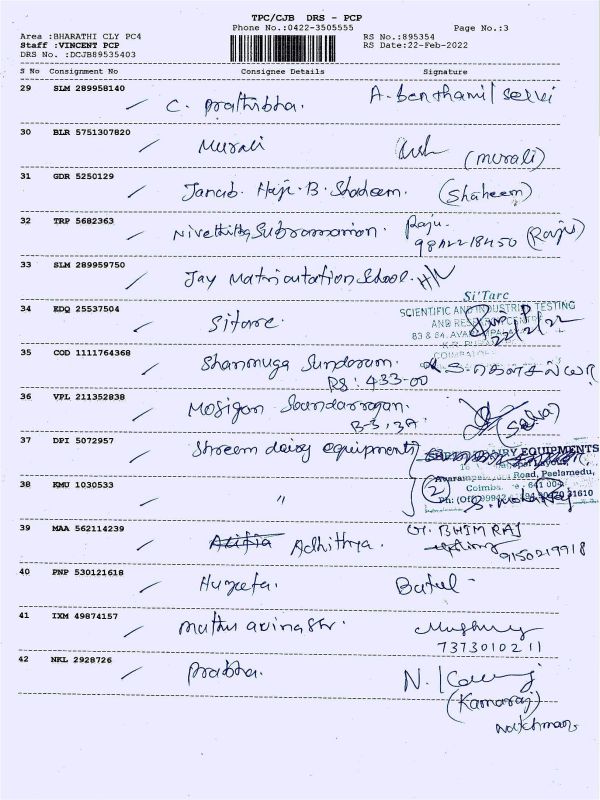 TPC/CJB DRS - PCP
Phone No.:0422-3505555
Page No.:3
Area :BHARATHI CLY PC4
Staff :VINCENT PCP
DRS No. :DCJB89535403
RS No.:895354
RS Date:22-Feb-2022
S No Consignment No Consignee Details Signature
29 SLM 289958140 C. Prathibha. A. benthamil selvi
30 BLR 5751307820 Murali (murali)
31 GDR 5250129 Janab. Haji. B. Shaheem. (Shaheem)
32 TRP 5682363 Nivethitha Subramanian. Raju.
98422 18450 (Raju)
33 SLM 289959750 Jay Matriculation School.
Si'Tarc
34 EDQ 25537504 Sitarc.
SCIENTIFIC AND INDUSTRIAL TESTING
AND
83 & 84,
22/2/22
35 COD 1111764368 Shanmuga Sundaram.
RS: 433-00
36 VPL 211352838 Mosigan Soundarrajan. (Selva)
B-3, 3A.
37 DPI 5072957 Shreem dairy equipments DAIRY EQUIPMENTS
Road, Peelamedu,
38 KMU 1030533 " (2) 641 004
31610
39 MAA 562114239 Adhithya. G. BHIM RAJ
9150219918
40 PNP 530121618 Huzeefa. Batul
41 IXM 49874157 muthu avinash.
7373010211
42 NKL 2928726 Prabha. N.
(Kamaraj)
watchman